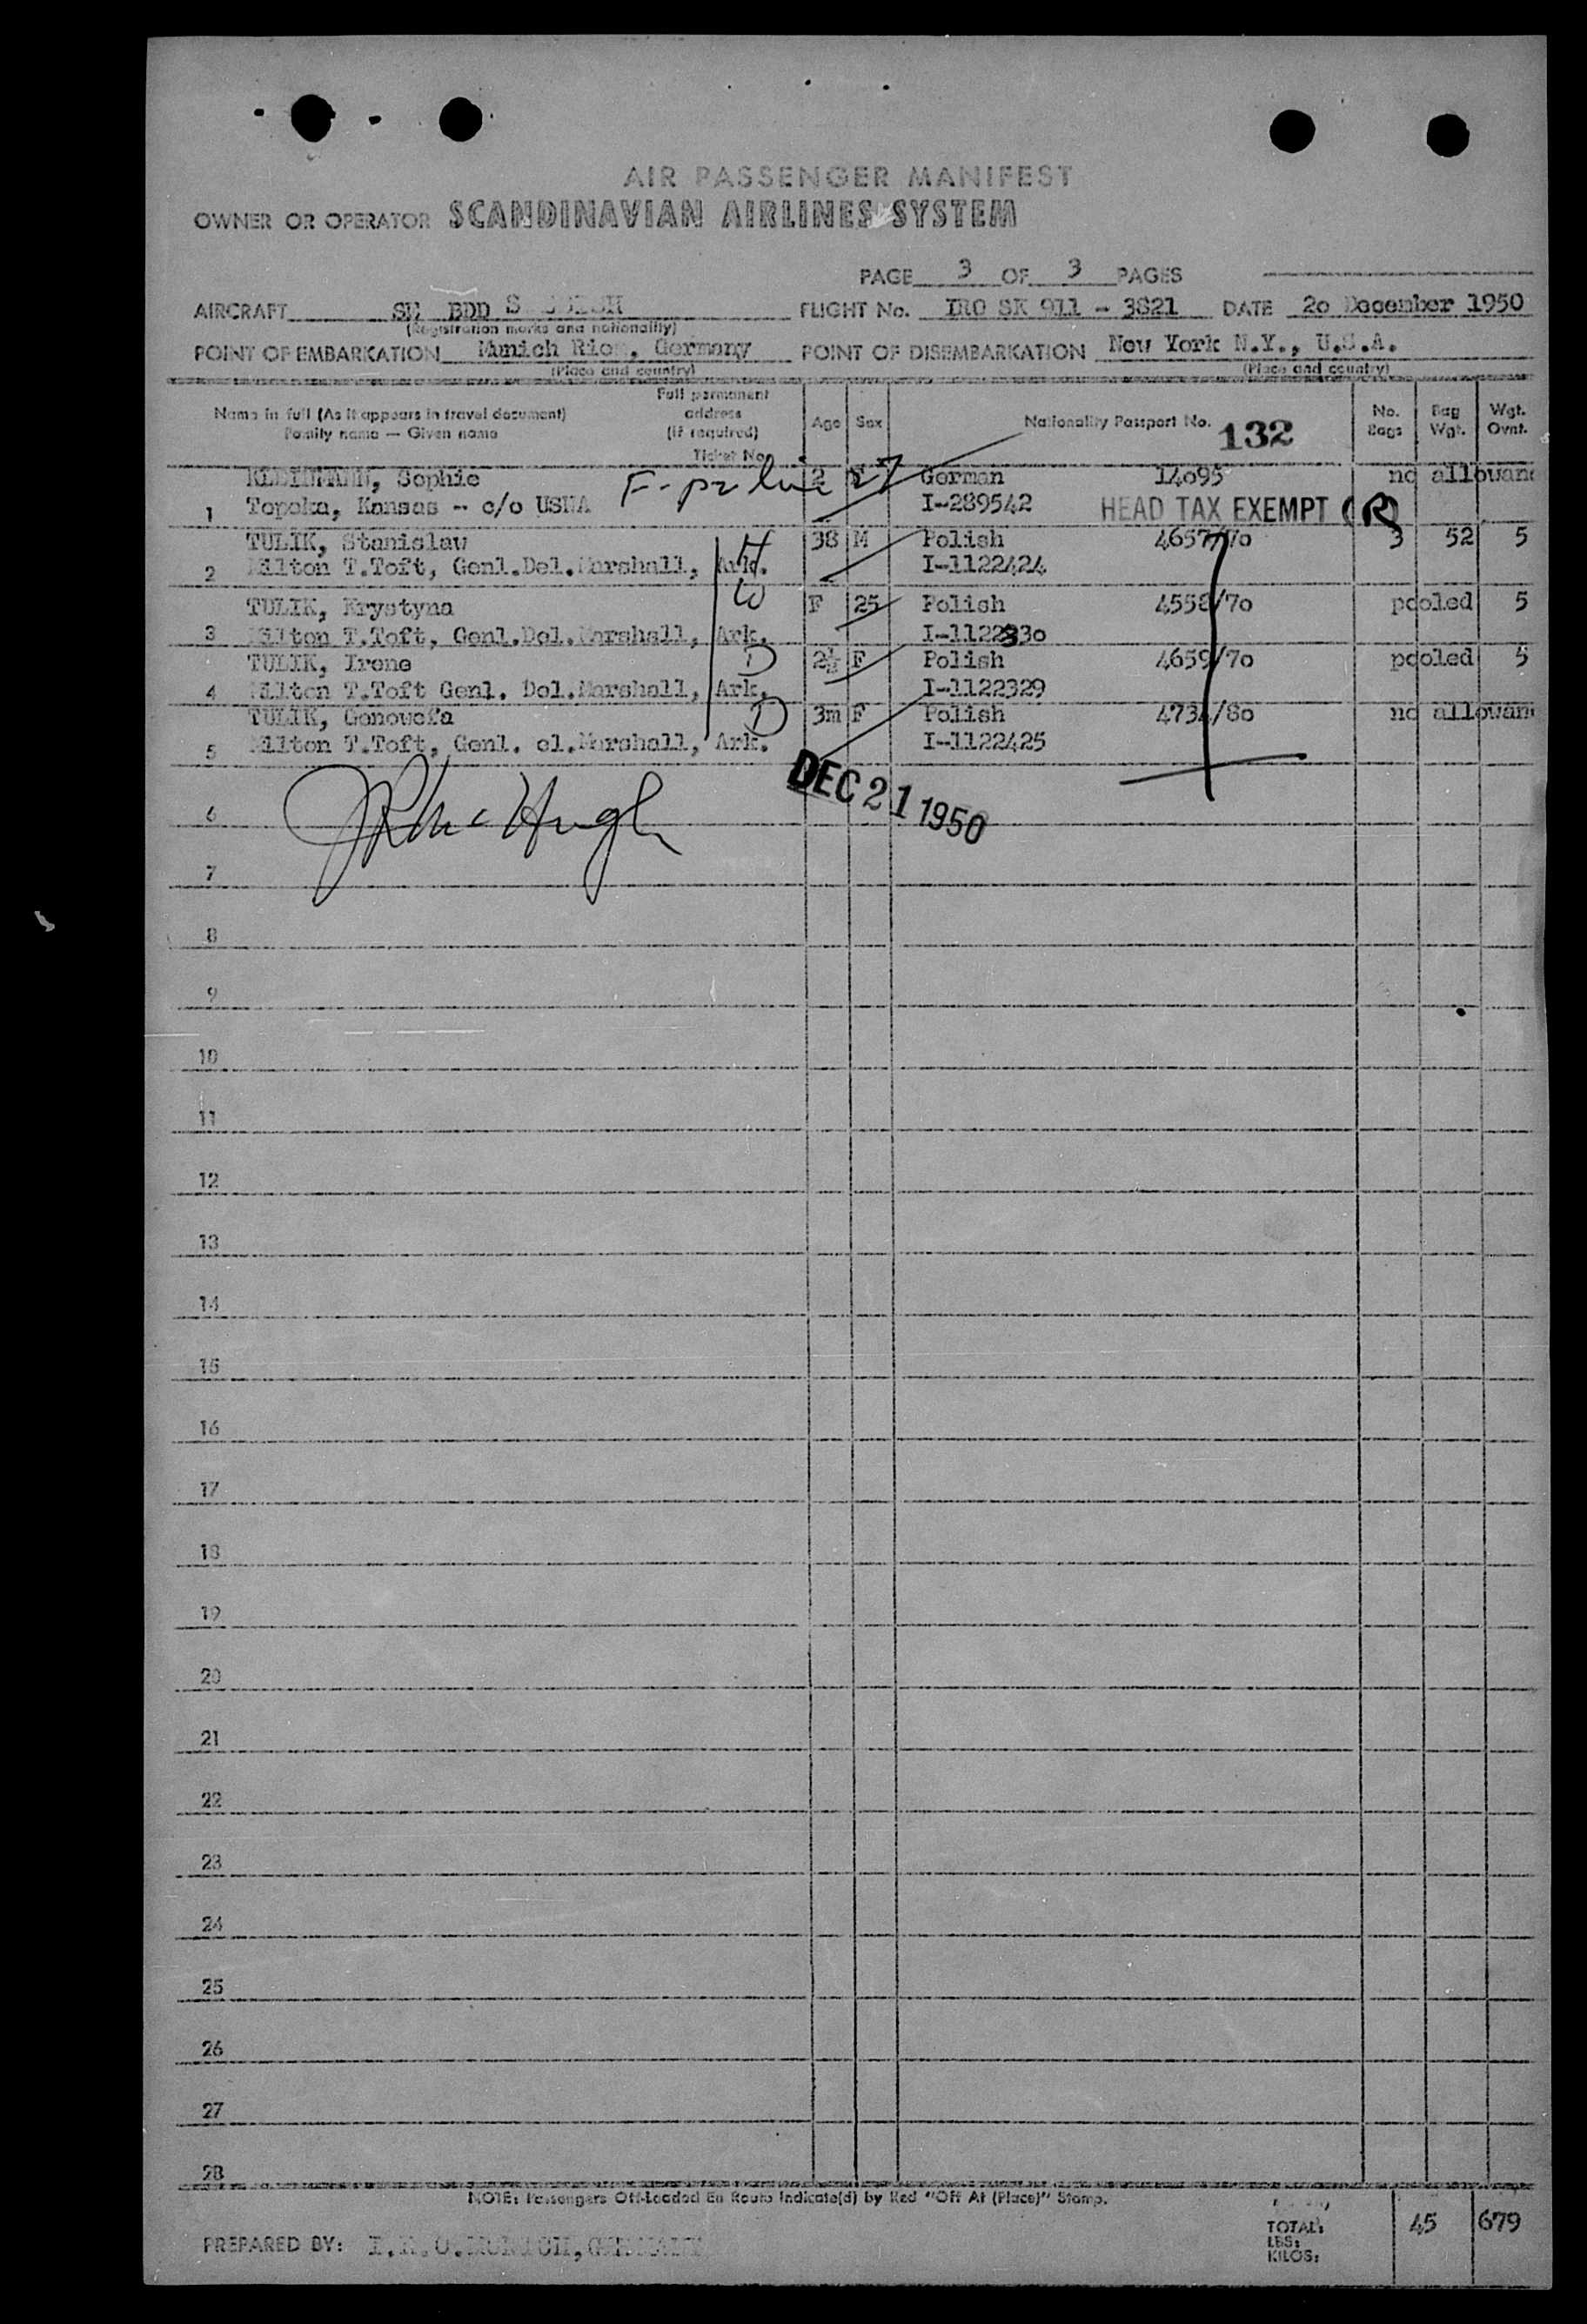 AIR PASSENGER MANIFEST
OWNER OR OPERATOR SCANDINAVIAN AIRLINES SYSTEM
PAGE 3 OF 3 PAGES
AIRCRAFT SE BDD FLIGHT No. IRO SK 911 - 3821 DATE 2o December 1950
(Registration marks and nationality)
POINT OF EMBARKATION Munich Riem, Germany POINT OF DISEMBARKATION New York N.Y., U.S.A.
(Place and country) (Place and country)
Name in full (As it appears in travel document) Family name — Given name Full permanent address (if required) Ticket No. Age Sex Nationality Passport No. 132 No. Bags Bag Wgt. Wgt. Ovnt.
KLEINMANN, Sophie 2 F German 14o95 no allowanc
1 Topeka, Kansas -- c/o USNA I-289542 HEAD TAX EXEMPT (R)
TULIK, Stanislaw H 38 M Polish 4657/7o 3 52 5
2 Milton T.Toft, Genl.Del.Marshall, Ark. I-1122424
TULIK, Krystyna W F 25 Polish 4558/7o pooled 5
3 Milton T.Toft, Genl.Del.Marshall, Ark. I-112233o
TULIK, Irene D 2½ F Polish 4659/7o pooled 5
4 Milton T.Toft Genl. Del.Marshall, Ark. I-1122329
TULIK, Genowefa D 3m F Polish 4734/8o no allowanc
5 Milton T.Toft, Genl. el.Marshall, Ark. I-1122425
DEC 21 1950
6
7
8
9
10
11
12
13
14
15
16
17
18
19
20
21
22
23
24
25
26
27
28
NOTE: Passengers Off-Loaded En Route Indicate(d) by Red "Off At (Place)" Stamp.
TOTAL: 45 679
LBS:
KILOS:
PREPARED BY: I.R.O.MUNICH, GERMANY